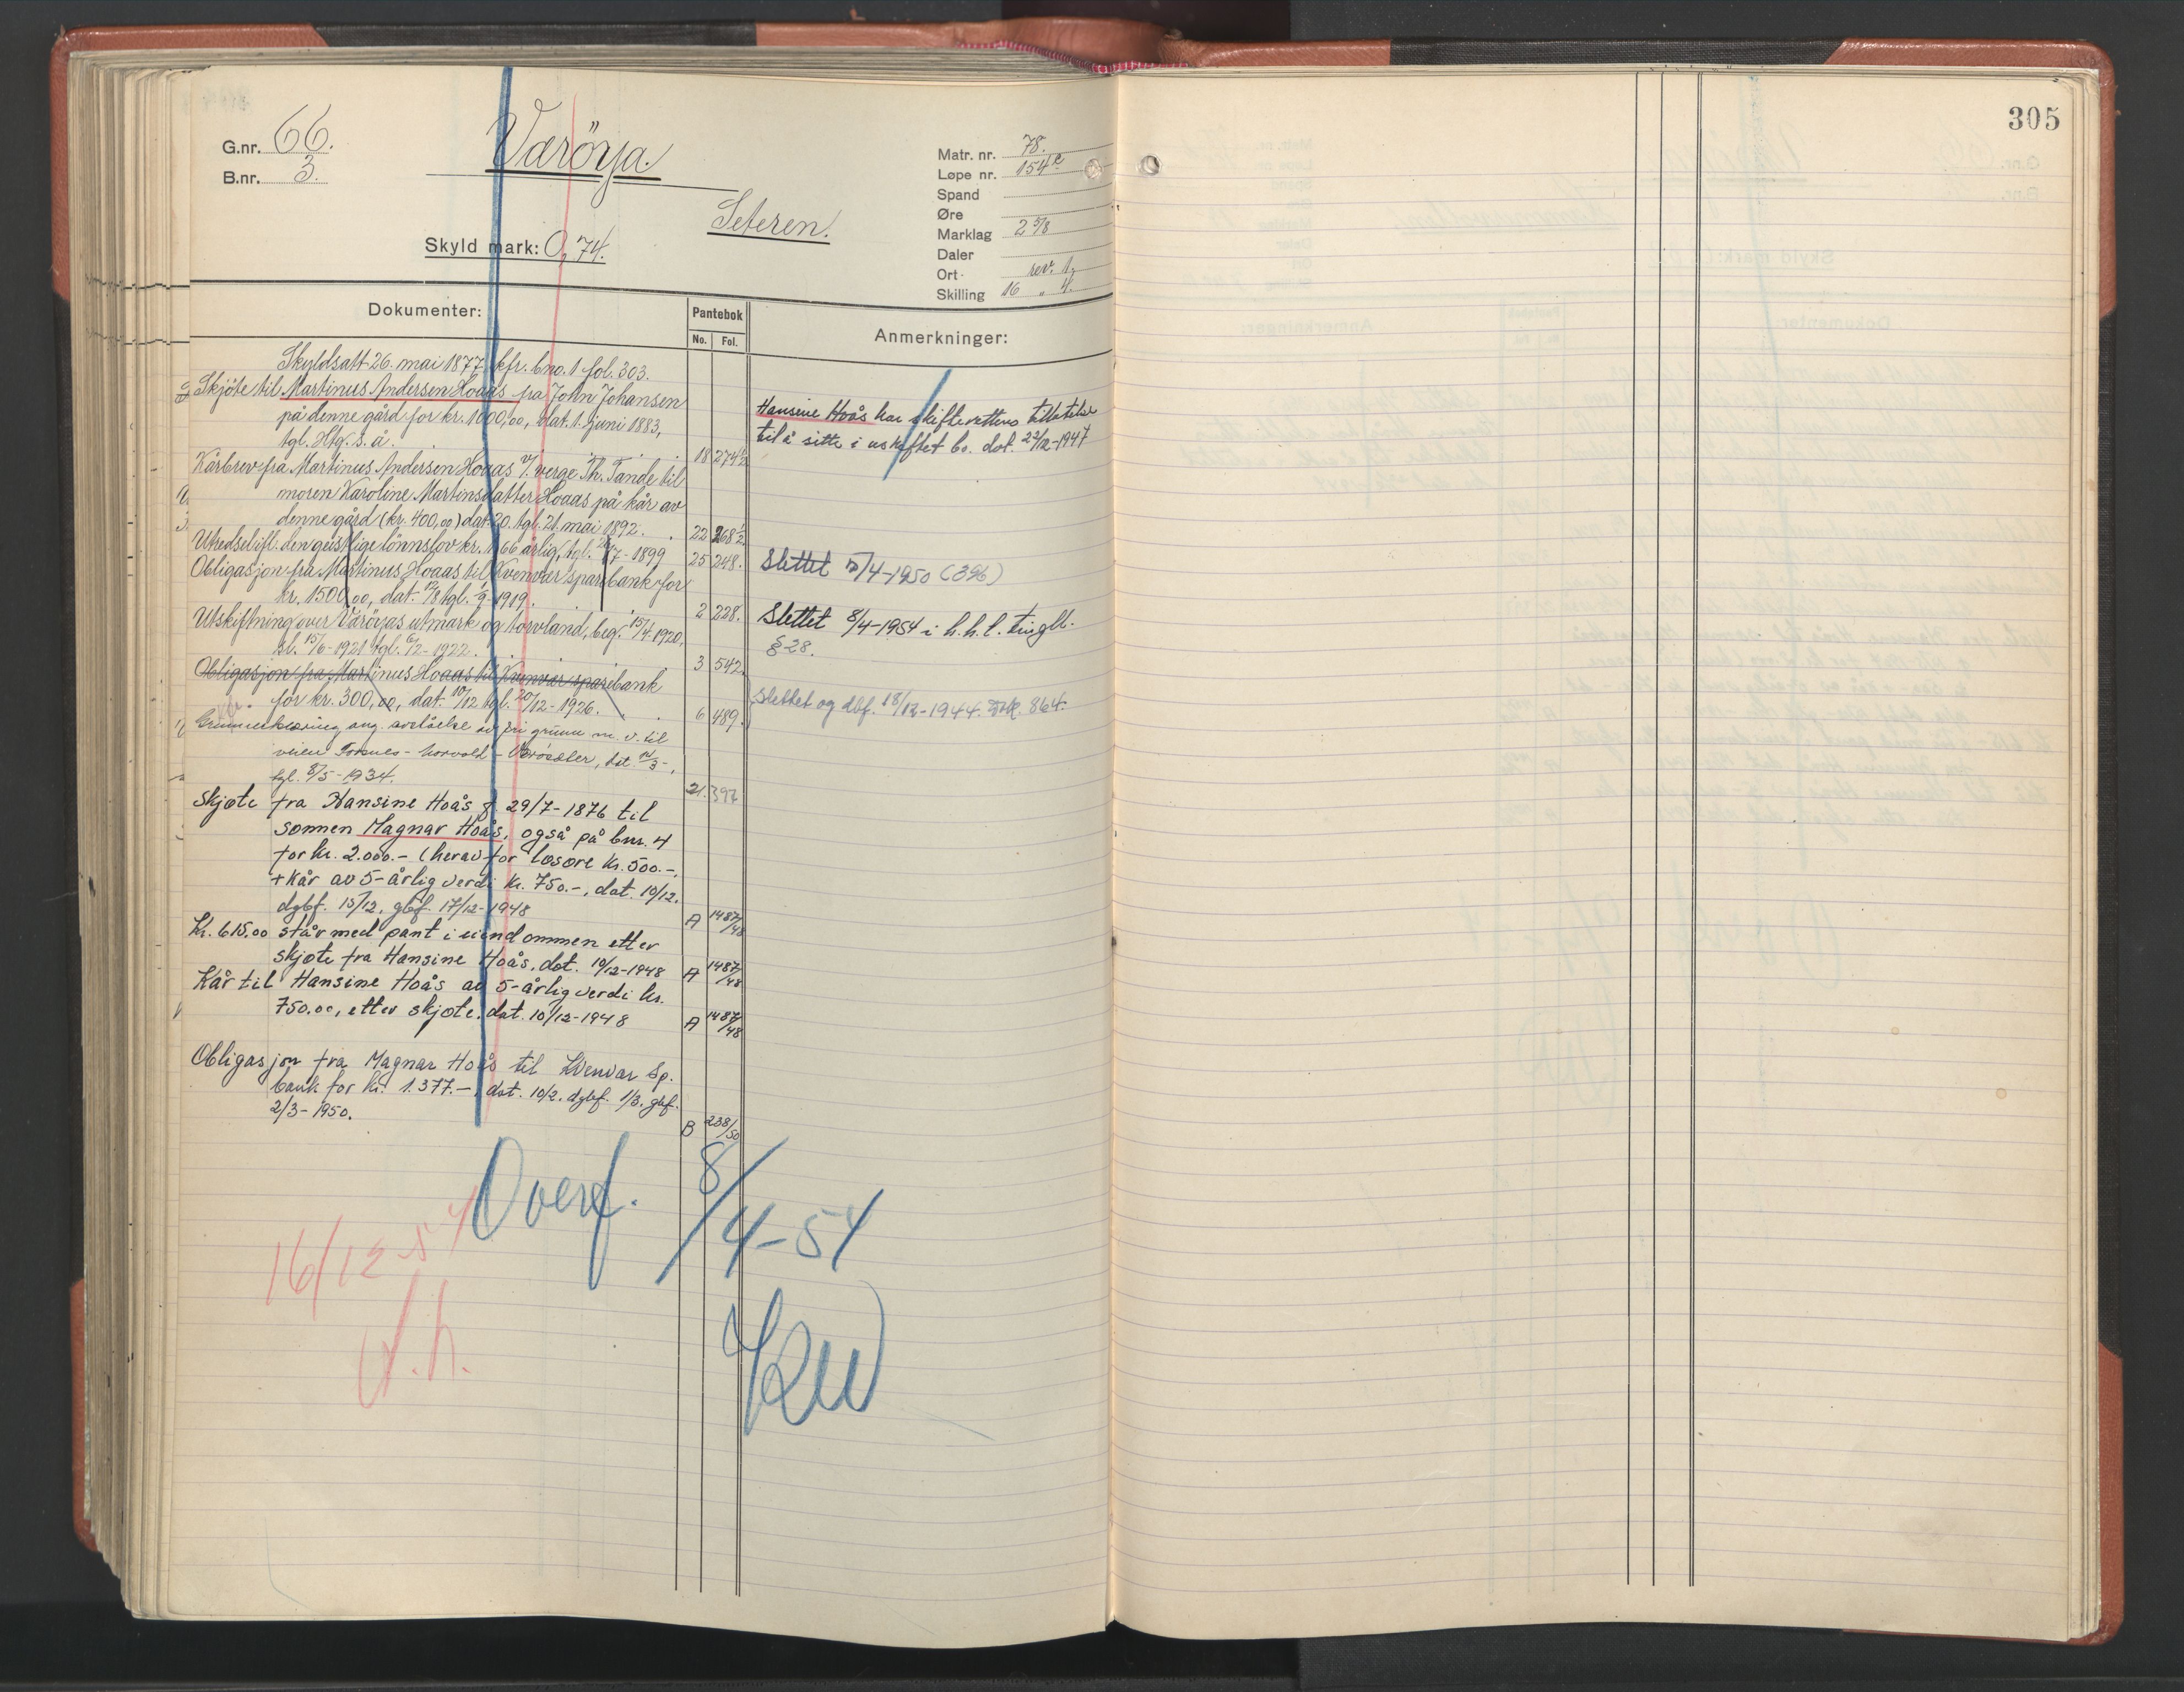 305
G.nr. 66.
B.nr. 3.
Værøya.
Seteren.
Skyld mark: 0,74.
Matr. nr. 78.
Løpe nr. 154 e
Spand
Øre
Marklag 2 5/8
Daler
Ort rev. 1,
Skilling 16 „ 4.
Dokumenter:
Pantebok
No. Fol.
Anmerkninger:
Skyldsatt 26. mai 1877, kfr. bno. 1 fol. 303.
Skjöte til Martinus Andersen Hoaas fra John Johansen
på denne gård for kr. 1000,00, dat. 1. juni 1883,
tgl. Htg. s. å. 18 274 1/2
Kårbrev fra Martinus Andersen Hoaas v/ verge Th. Tande til
moren Karoline Martinsdatter Hoaas på kår av
denne gård (kr. 400,00) dat. 20. tgl. 21. mai 1892. 22 268 1/2
Utredsel ifl. den geistlige lönnslov kr. 1,66 årlig, tgl. /7-1899 25 248.
Obligasjon fra Martinus Hoaas til Kvenvær sparebank for
kr. 1500,00, dat. /8 tgl. /9-1919. 2 228.
Utskiftning over Väröyas utmark og torvland, beg. 15/4-1920,
sl. 15/6-1921 tgl. 6/2-1922. 3 542.
Obligasjon fra Martinus Hoaas til Kvenvær sparebank
for kr. 300,00, dat. 10/12 tgl. 20/12-1926. 6 489.
Grunnerklæring ang. avståelse av fri grunn m. v. til
veien Forsnes - - Værøseter, dat. /3-,
tgl. 8/5-1934. 21. 397
Skjøte fra Hansine Hoås f. 29/7-1876 til
sønnen Magnar Hoås, også på bnr. 4
for kr. 2.000.- (herav for løsøre kr. 500.-,
+ kår av 5-årlig verdi kr. 750.-, dat. 10/12,
dgbf. 15/12, gbf. 17/12-1948 A 1487/48
Kr. 615.00 står med pant i eiendommen etter
skjøte fra Hansine Hoås, dat. 10/12-1948 A 1487/48
Kår til Hansine Hoås av 5-årlig verdi kr.
750.00, etter skjøte, dat. 10/12-1948 A 1487/48
Obligasjon fra Magnar Hoås til Kvenvær Sp.
bank for kr. 1.377.-, dat. 10/2. dgbf. 1/3. gbf.
2/3-1950. B 238/50
Hansine Hoås har skifterettens tillatelse
til å sitte i uskiftet bo. dat. 22/12-1947
Slettet 5/4-1950 (396)
Slettet 8/4-1954 i h.h.t. tingll.
§ 28.
Slettet og dbf. 18/12-1944. Dok. 864.
Overf. 8/4-54
KW
16/12-54